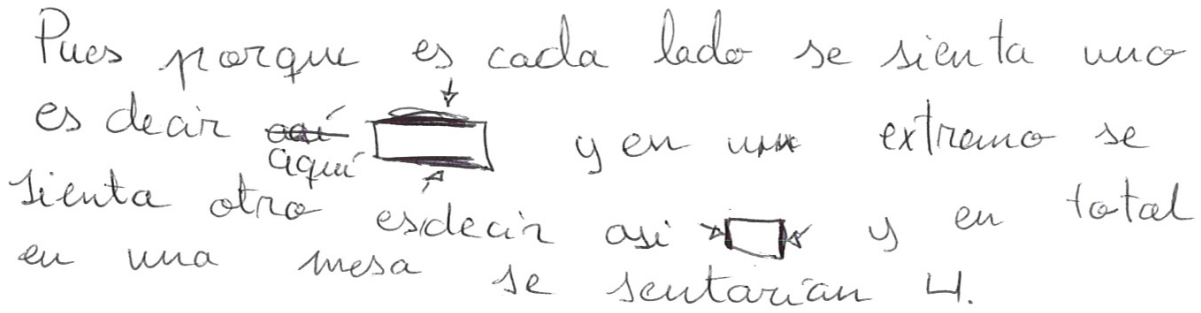 Pues porque es cada lado se sienta uno
es decir así aquí y en un extremo se
sienta otro es decir asi y en total
en una mesa se sentarían 4.